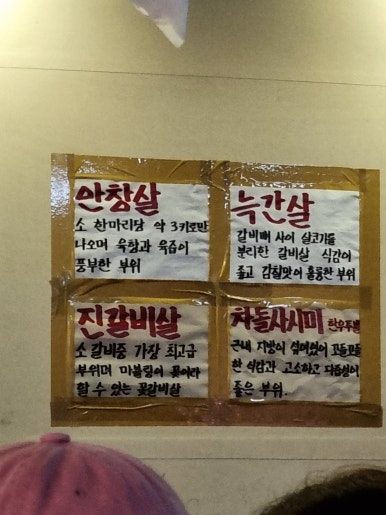 안창살
소 한마리당 약 3키로만
나오며 육향과 육즙이
풍부한 부위
늑간살
갈비뼈 사이 살코기를
분리한 갈비살 식감이
좋고 감칠맛이 훌륭한 부위
진갈비살
소갈비중 가장 최고급
부위며 마블링이 꽃이라
할 수 있는 꽃갈비살
차돌사시미 한우투뿔
근내 지방이 섞여있어 꼬들꼬들
한 식감과 고소하고
좋은 부위.